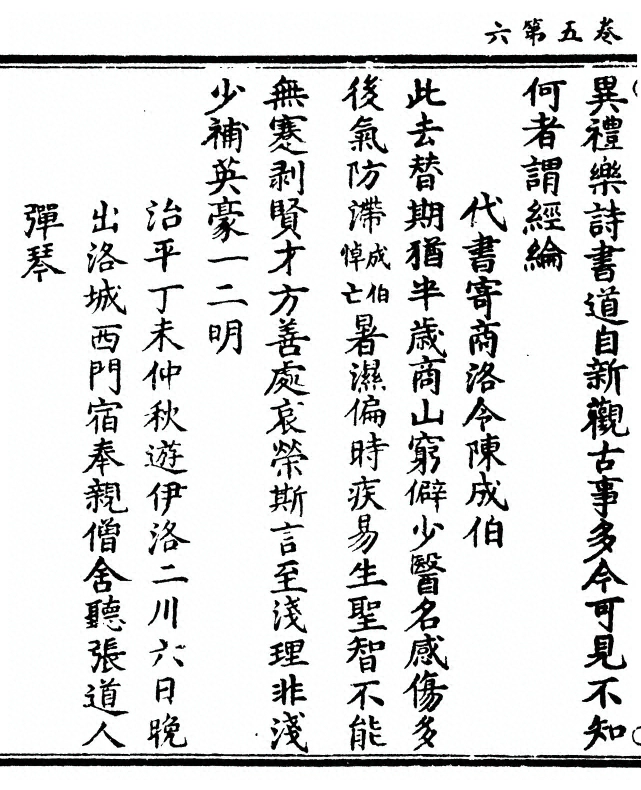 卷五第六
異禮樂詩書道自新觀古事多今可見不知
何者謂經綸
代書寄商洛令陳成伯
此去替期猶半歲商山窮僻少醫名感傷多
後氣防滯成伯悼亡暑濕偏時疾易生聖智不能
無蹇剥賢才方善處哀榮斯言至淺理非淺
少補英豪一二明
治平丁未仲秋遊伊洛二川六日晚
出洛城西門宿奉親僧舍聽張道人
彈琴